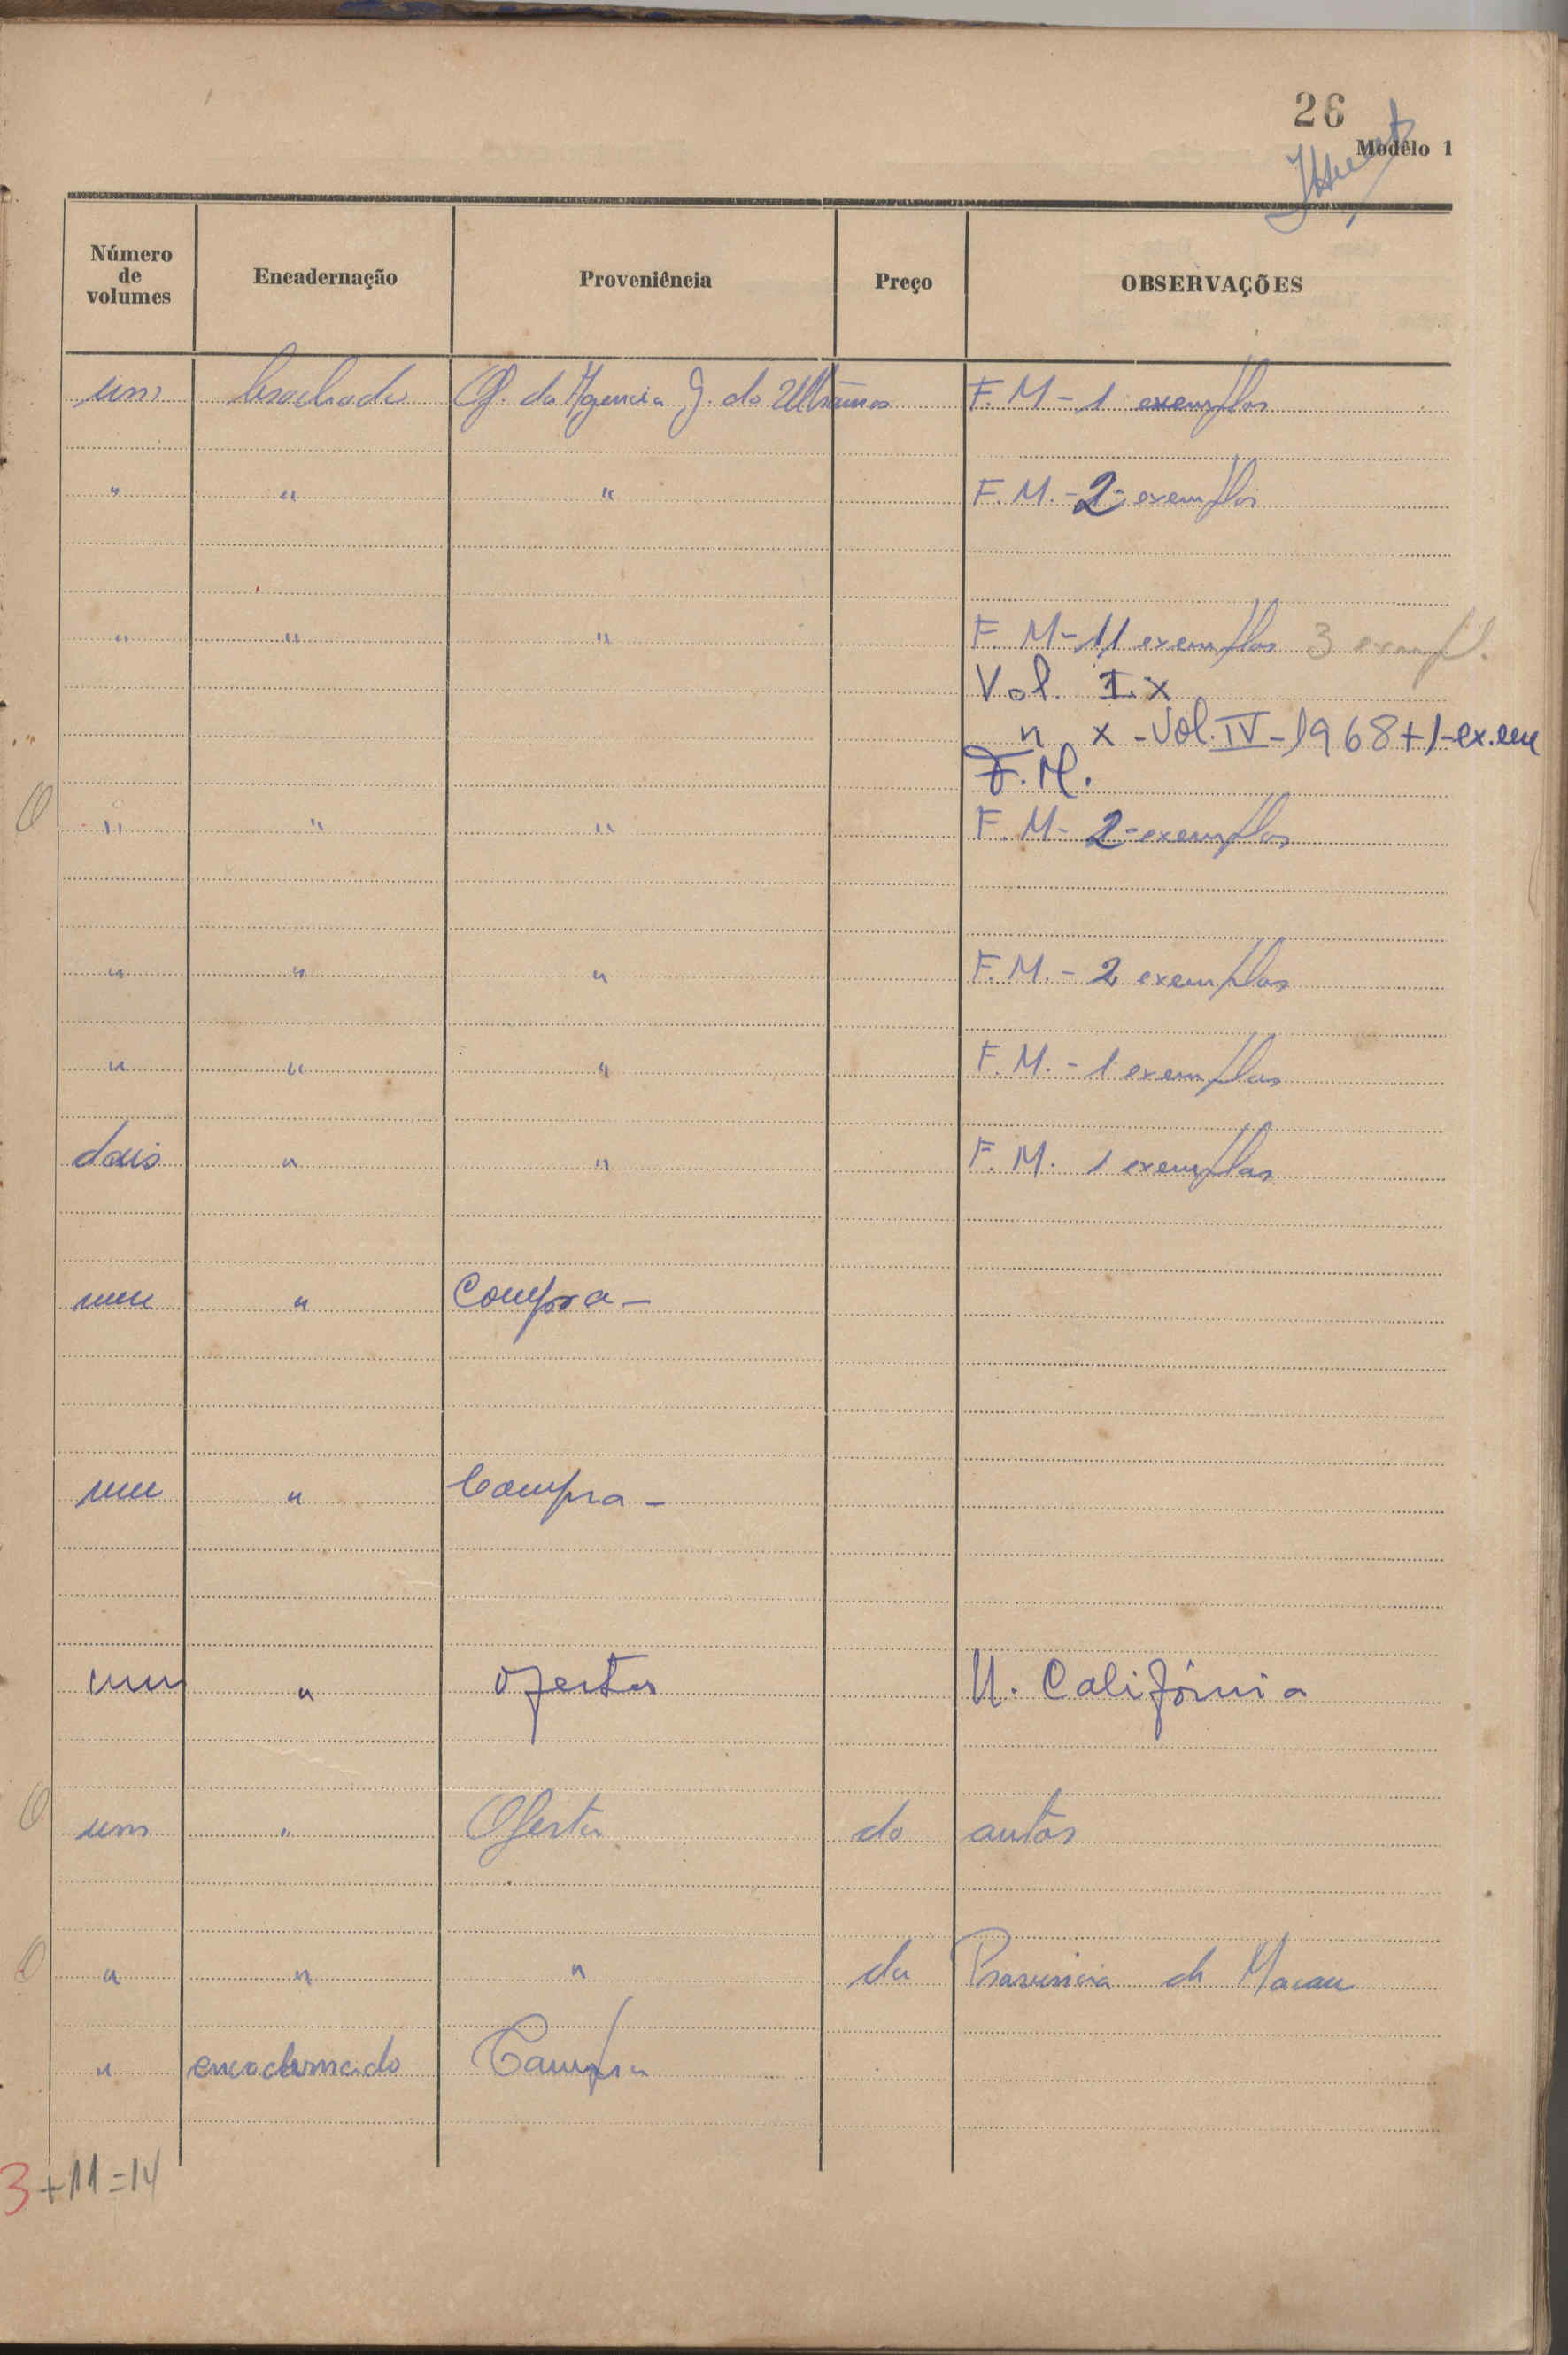 26
Modêlo 1
Número de volumes Encadernação Proveniência Preço OBSERVAÇÕES
um brochado Of. da Agencia G. do Ultramar F. M - 1 exemplar
" " " F. M. - 2 - exemplar
" " " F. M - 11 exemplar 3 exempl.
Vol. I. x
" x - Vol. IV - 1968 + 1 - ex. em
F. M.
" " " F. M - 2 - exemplar
" " " F. M. - 2 exemplar
" " " F. M. - 1 exemplar
dois " " F. M. 1 exemplar
um " Compra -
um " Compra -
um " oferta U. Califórnia
um " Oferta do autor
" " " da Provincia de Macau
" encadernado Compra
3 + 11 = 14